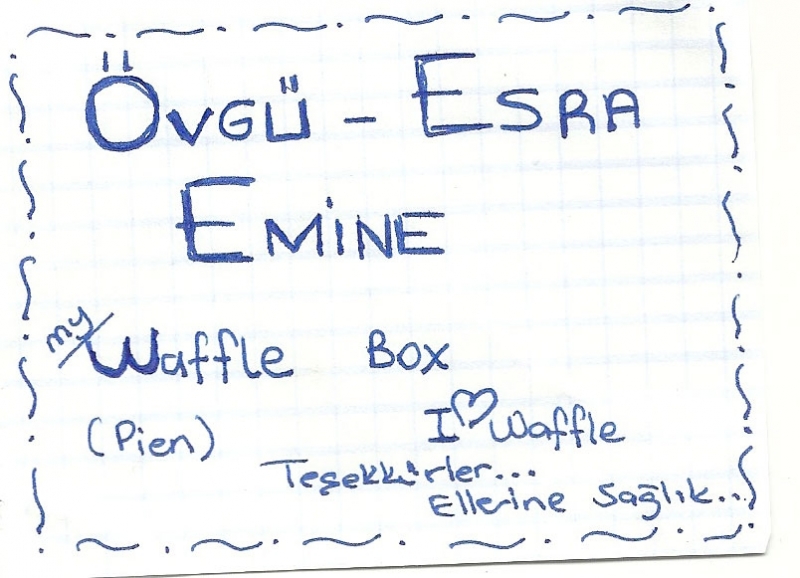 ÖVGÜ - ESRA
EMİNE
my Waffle Box
(Pien)
I ♡ Waffle
Teşekkürler...
Ellerine Sağlık..